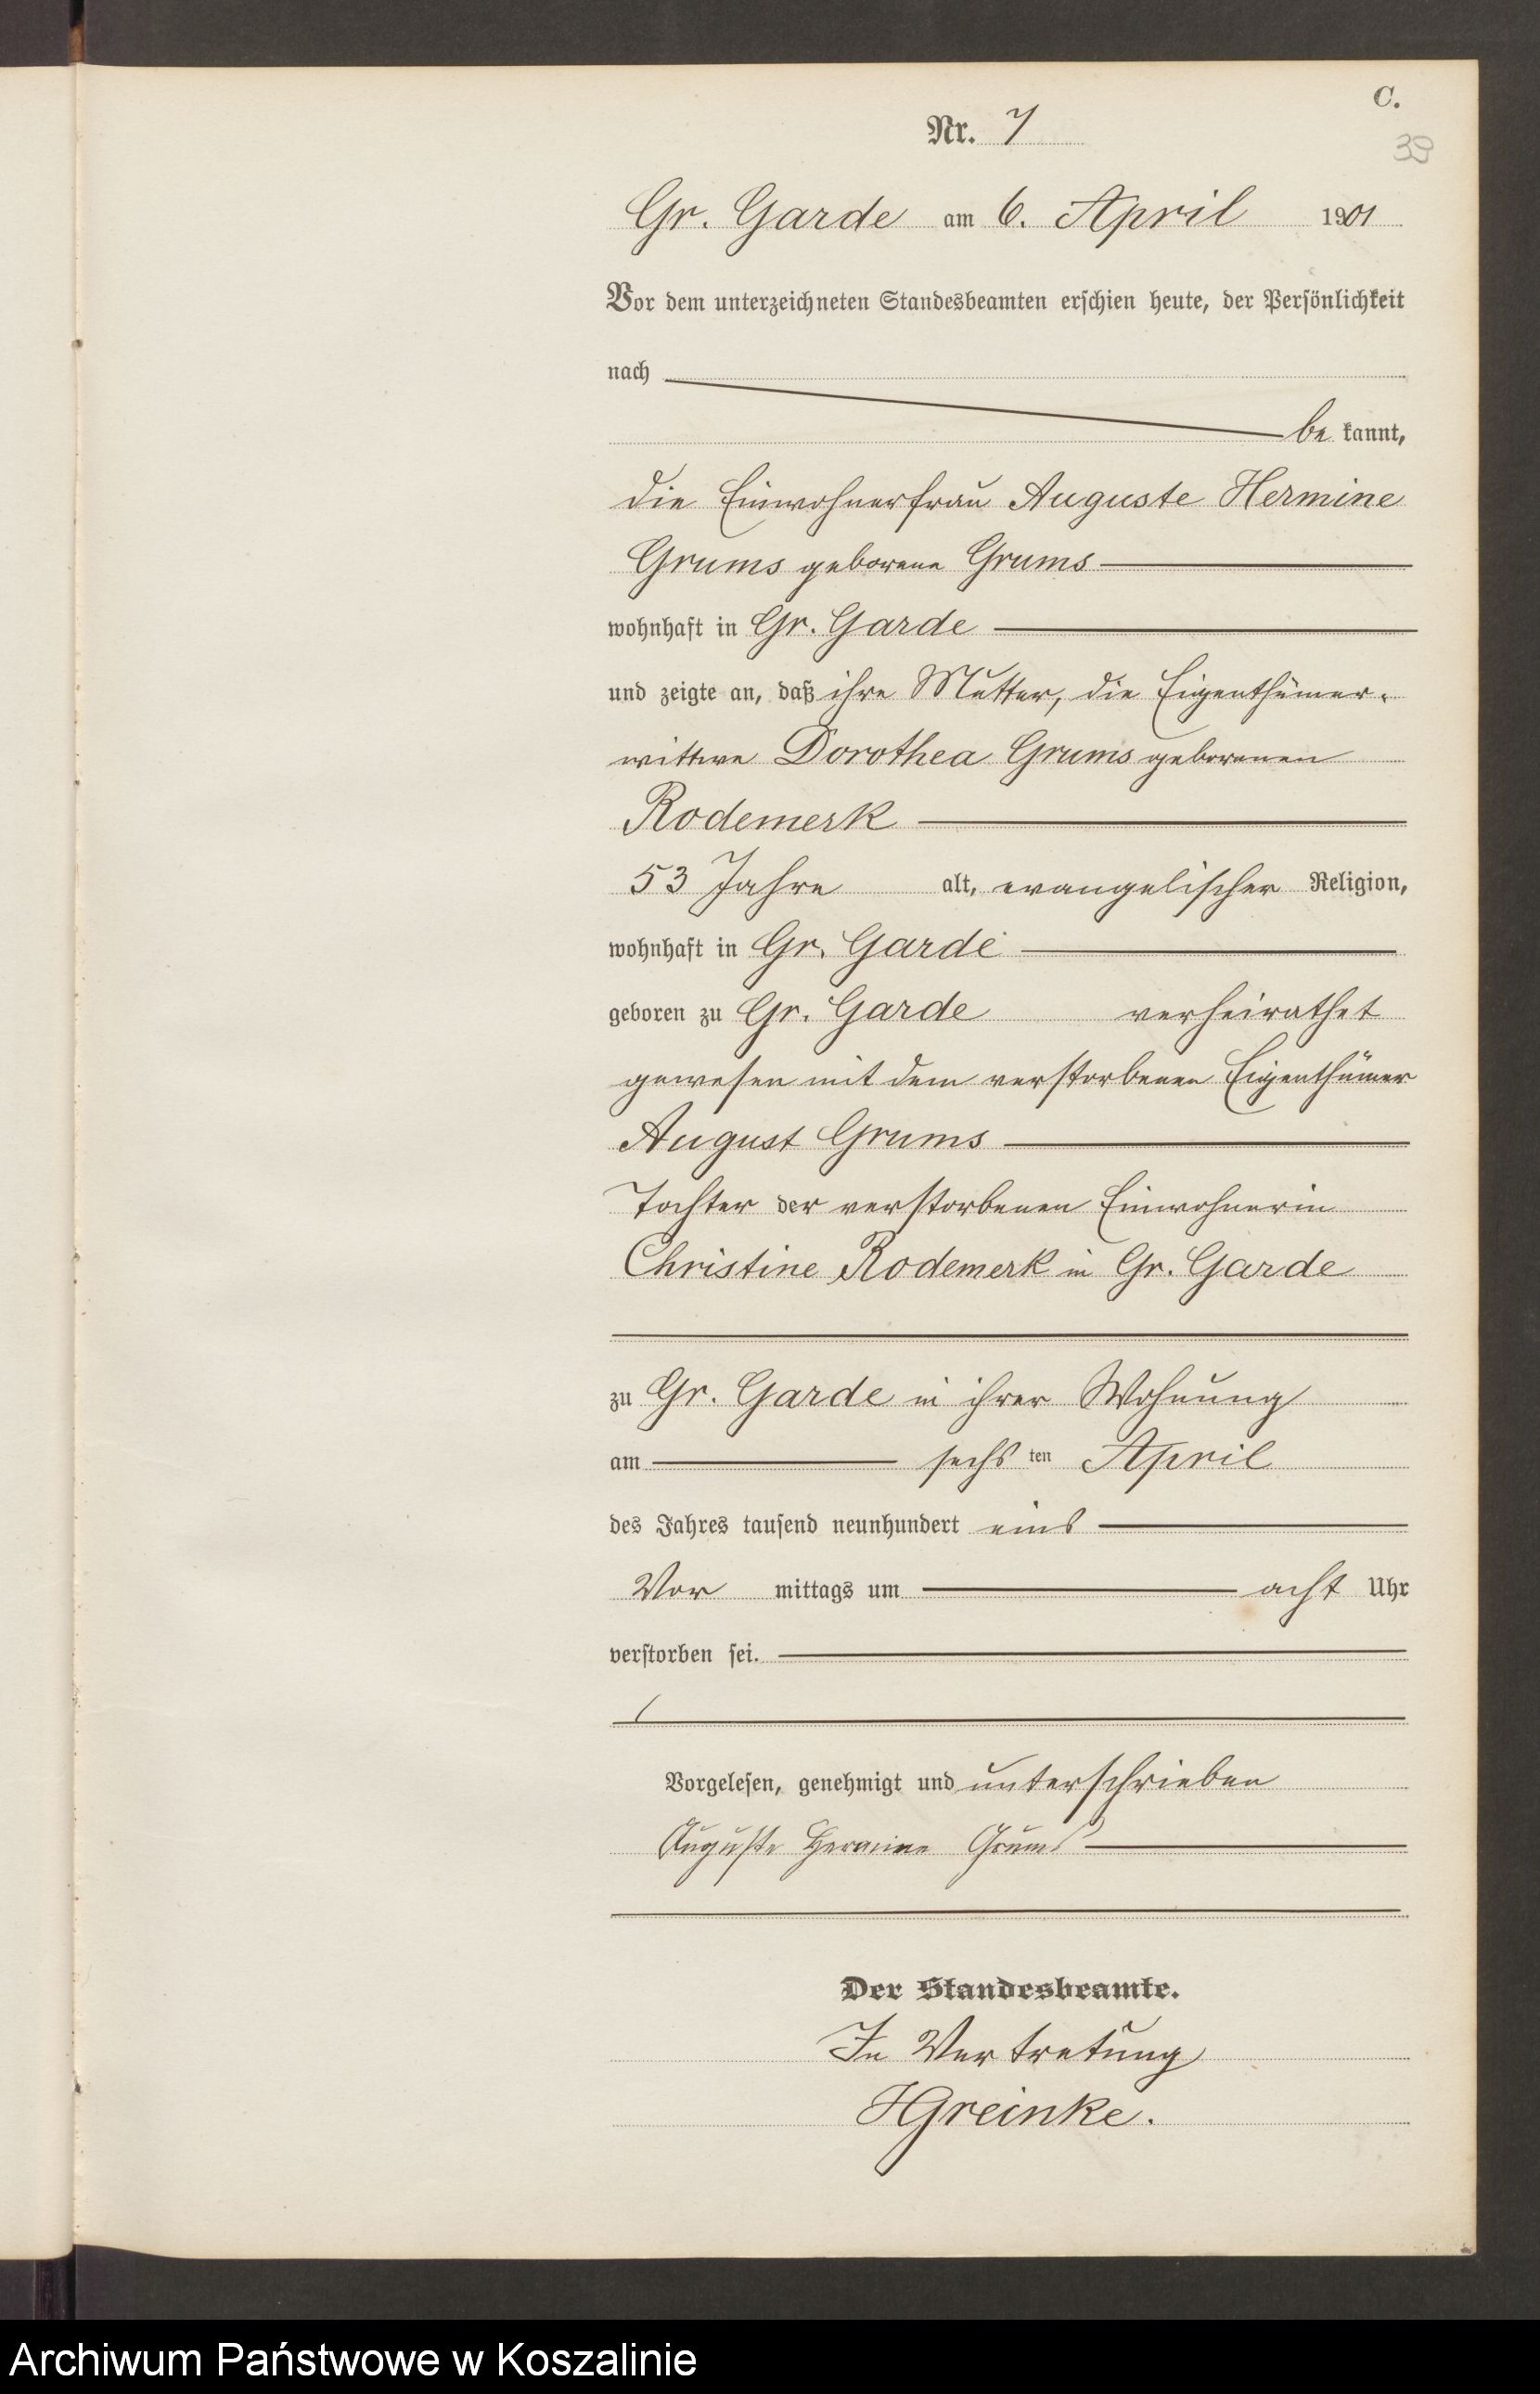 C.
Nr. 7
39
Gr. Garde am 6. April 1901
Vor dem unterzeichneten Standesbeamten erschien heute, der Persönlichkeit
nach
be kannt,
die Einwohnerfrau Auguste Hermine
Grums geborene Grums
wohnhaft in Gr. Garde
und zeigte an, daß ihre Mutter, die Eigenthümer-
wittwe Dorothea Grums geborenen
Rodemerk
53 Jahre alt, evangelischer Religion,
wohnhaft in Gr. Garde
geboren zu Gr. Garde verheirathet
gewesen mit dem verstorbenen Eigenthümer
August Grums
Tochter der verstorbenen Einwohnerin
Christine Rodemerk in Gr. Garde
zu Gr. Garde in ihrer Wohnung
am sechs ten April
des Jahres tausend neunhundert eins
Vor mittags um acht Uhr
verstorben sei.
Vorgelesen, genehmigt und unterschrieben
Auguste Hermine Grums
Der Standesbeamte.
In Vertretung
HGreinke.
Archiwum Państwowe w Koszalinie